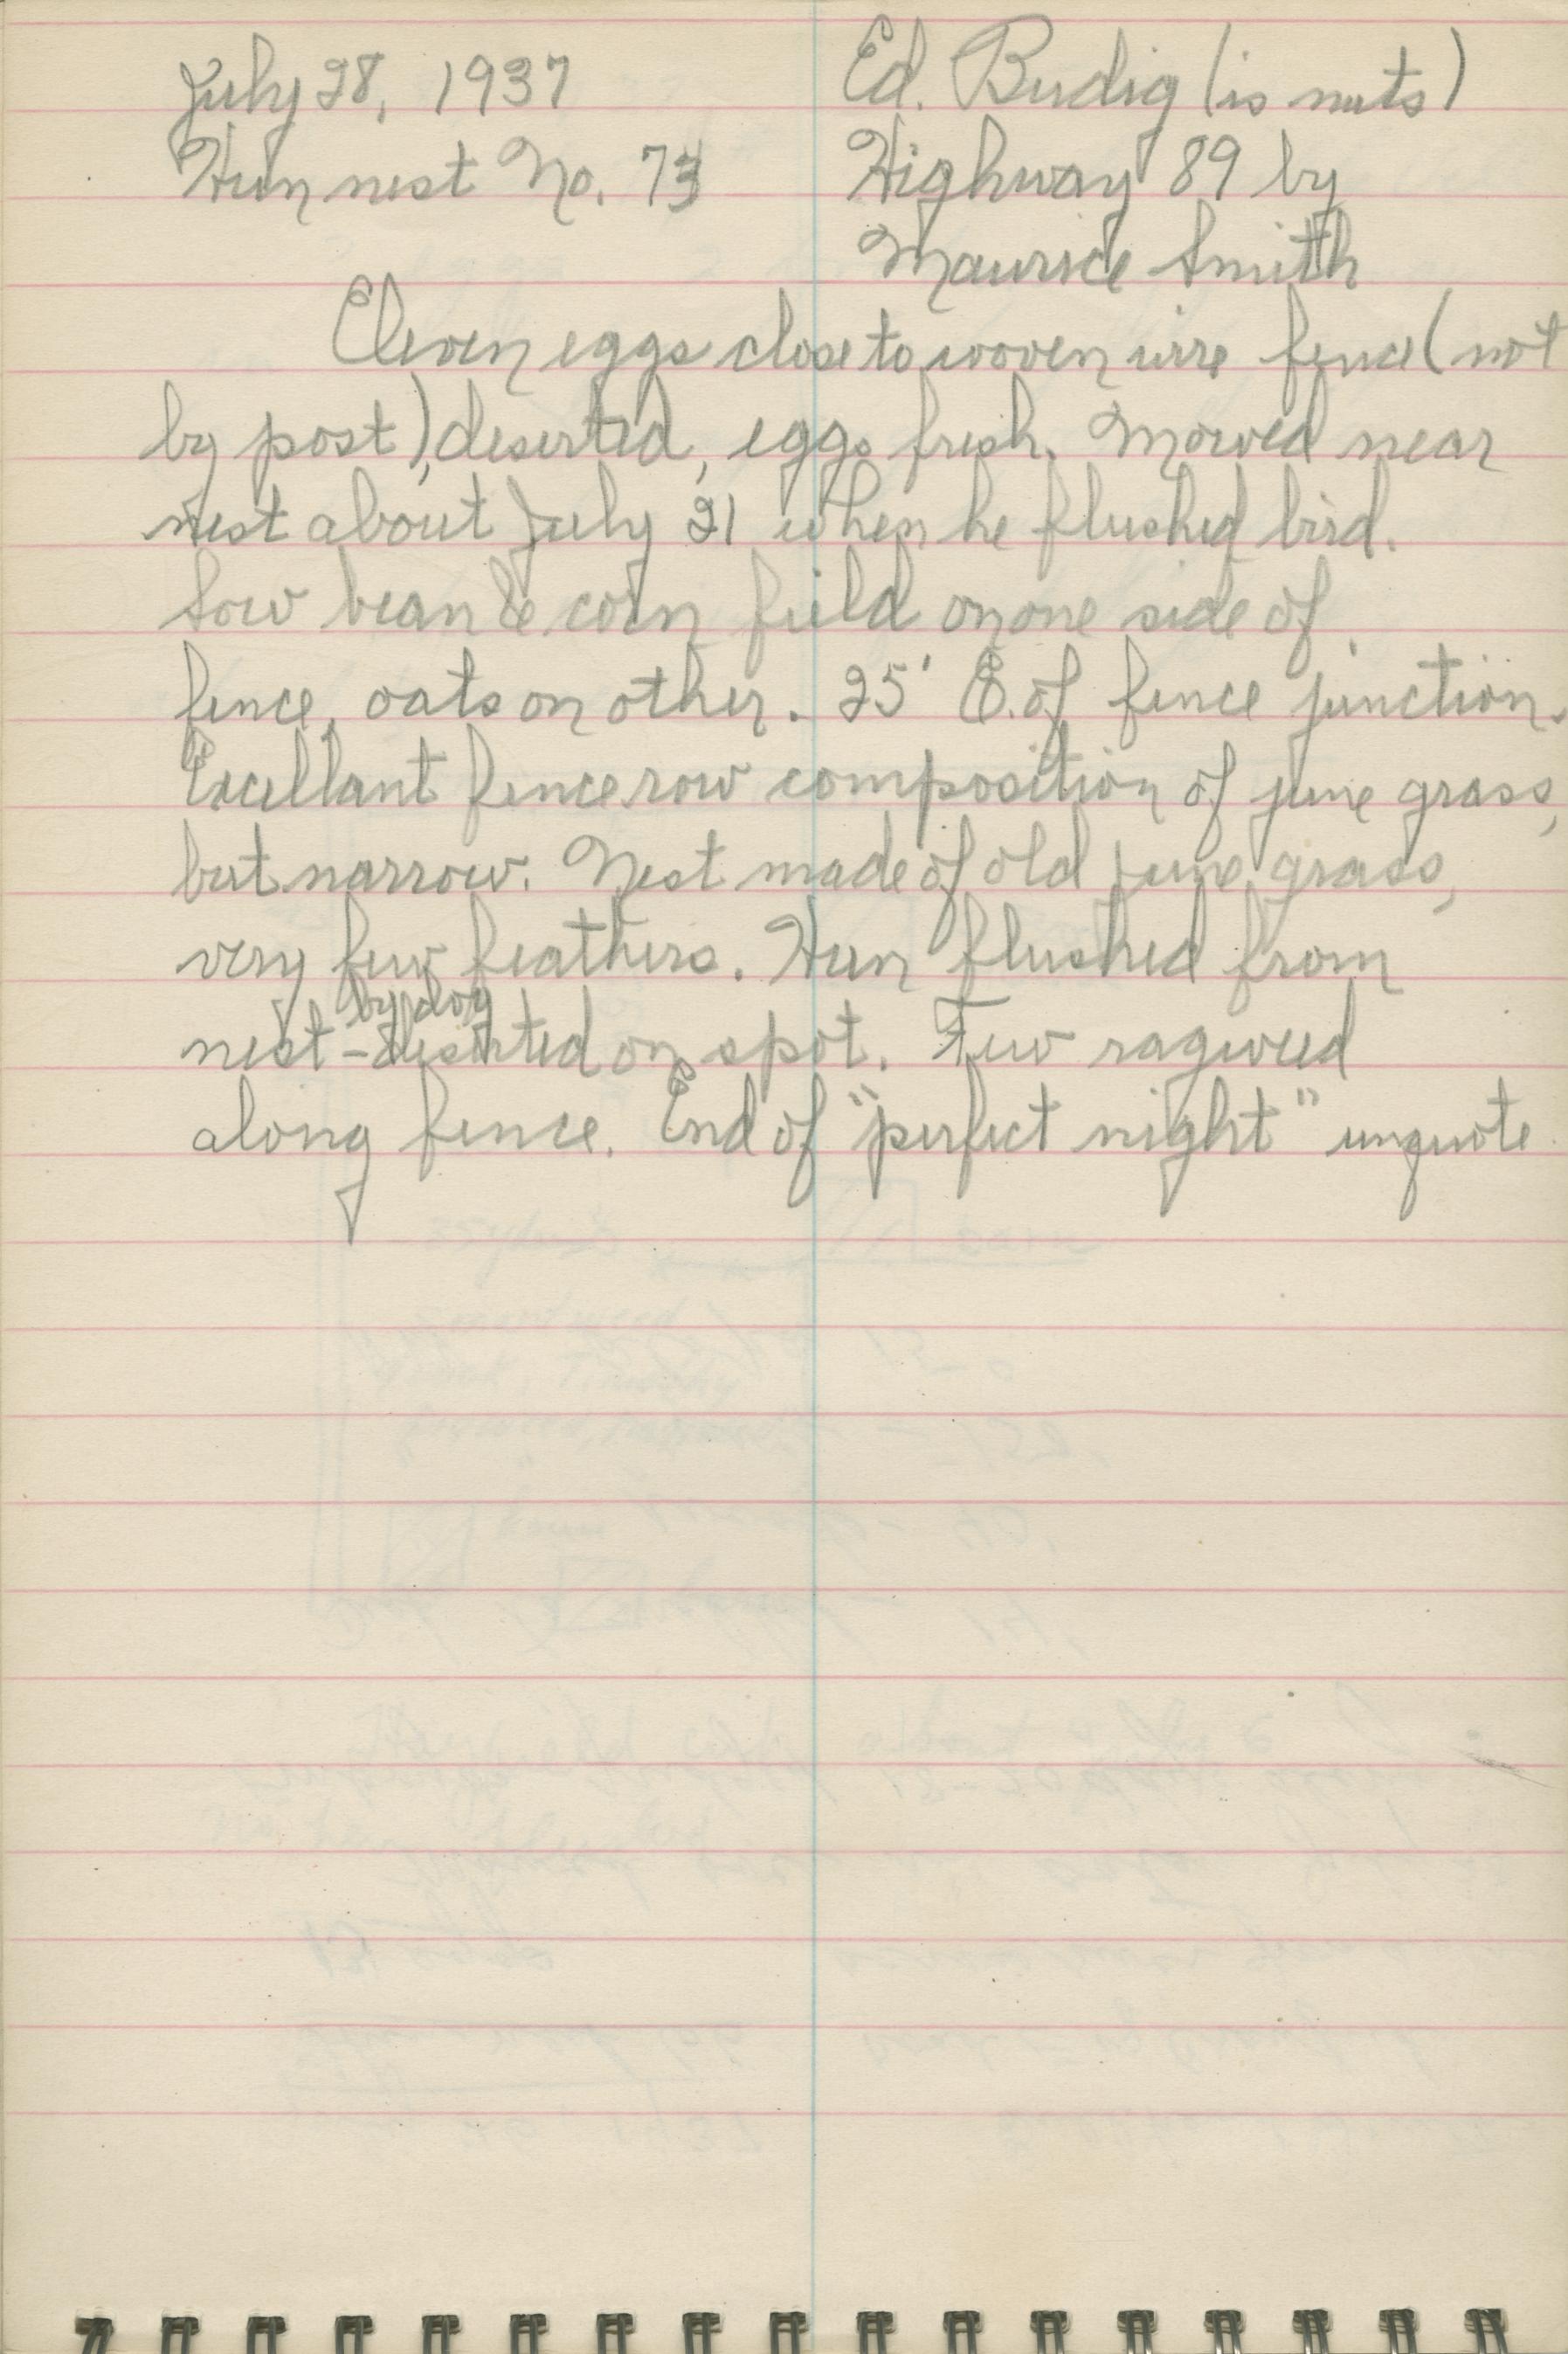 July 28, 1937
Hun nest No. 73
Ed. Budig (is nuts)
Highway 89 by
Maurice Smith
Eleven eggs close to woven wire fence (not
by post), deserted, eggs fresh. Mowed near
nest about July 21 when he flushed bird.
Sow bean & corn field on one side of
fence, oats on other. 25' E. of fence junction.
Excellant fence row composition of june grass,
but narrow. Nest made of old june grass,
very few feathers. Hun flushed from
by dog
nest - deserted on spot. Few ragweed
along fence. End of "perfect night" unquote